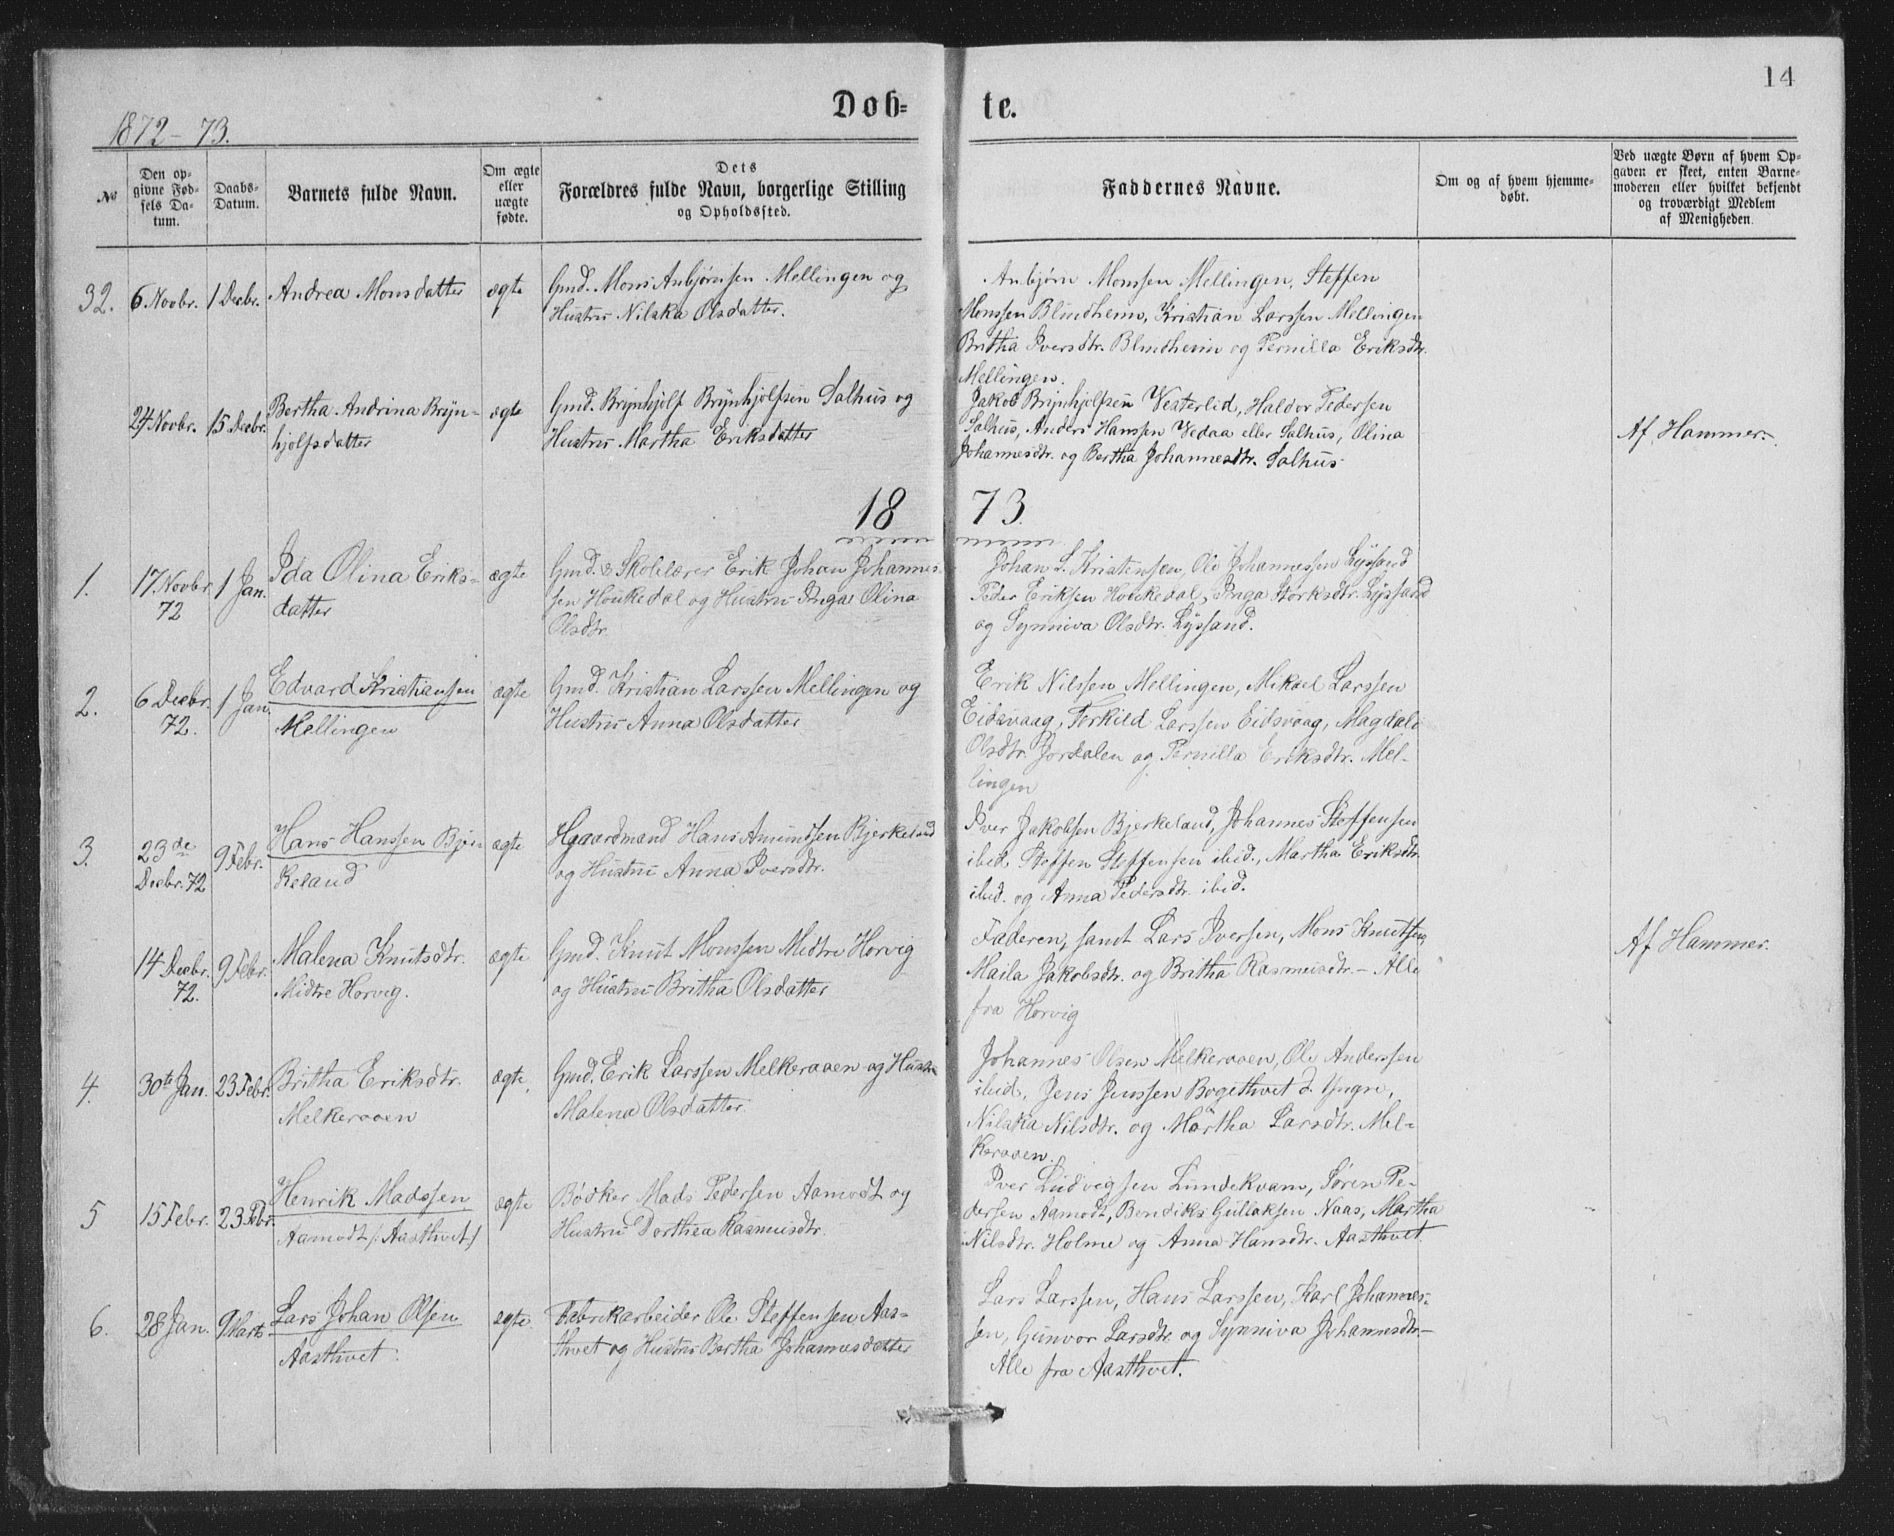 14
Døb-
te.
1872-73.
№
Den op-
givne Fød-
sels Da-
tum.
Daabs-
Datum.
Barnets fulde Navn.
Om ægte
eller
uægte
fødte.
Dets
Forældres fulde Navn, borgerlige Stilling
og Opholdssted.
Faddernes Navne.
Om og af hvem hjemme-
døbt.
Ved uægte Børn af hvem Op-
gaven er skeet, enten Barne-
moderen eller hvilket bekjendt
og troværdigt Medlem
af Menigheden.
32. 6 Novbr. 1 Decbr. Andrea Monsdatter ægte
Gmd. Mons Anbjørnsen Mellingen og
Hustru Nilska Olsdatter.
Anbjørn Monssen Mellingen, Steffen
Monssen Blindheim, Kristian Larssen Mellingen
Britha Iversdtr. Blindheim og Pernilla Eriksdtr.
Mellingen.
24 Novbr. 15 Decbr. Bertha Andrina Bryn-
hjolfsdatter
ægte
Gmd. Brynhjolf Brynhjolfsen Salhus og
Hustru Martha Eriksdatter
Jakob Brynhjolfsen Vesterlid, Haldor Pedersen
Salhus, Anders Hanssen Vedaa eller Salhus, Olina
Johannesdtr. og Bertha Johannesdtr. Salhus
Af Hammer.
1873
1. 17 Novbr
72
1 Jan. Ida Olina Eriks-
datter
ægte
Gmd. & Skolelærer Erik Johan Johannes-
sen Houkedal og Hustru Inga Olina
Olsdtr.
Johan L. Kristensen, Ole Johannessen Lyssand
Peder Eriksen Houkedal, Inga Størksdtr. Lyssand
og Synniva Olsdtr. Lyssand.
2. 6 Decbr.
72.
1 Jan. Edvard Kristiansen
Mellingen
ægte
Gmd. Kristian Larssen Mellingen og
Hustru Anna Olsdatter
Erik Nilssen Mellingen, Mikael Larssen
Eidsvaag, Terkild Larssen Eidsvaag, Magdali
Olsdtr. Jordalen og Pernilla Eriksdtr. Mel-
lingen
3. 23de
Decbr. 72
9 Febr. Hans Hanssen Bjer-
keland
ægte
Hgaardmand Hans Amundsen Bjerkeland
og Hustru Anna Iversdtr.
Iver Jakobsen Bjerkeland, Johannes Steffensen
ibid. Steffen Steffensen ibid., Martha Eriksdtr.
ibid. og Anna Pedersdtr. ibid.
14 Decbr.
72.
9 Febr. Malena Knutsdtr.
Midtre Horvig.
ægte
Gmd. Knut Monssen Midtre Horvig
og Hustru Britha Olsdatter
Faderen, samt Lars Iversen, Mons Knutsen
Maila Jakobsdtr. og Britha Rasmusdtr. - Alle
fra Horvig
Af Hammer.
4. 30te Jan. 23 Febr. Britha Eriksdtr.
Melkeraaen
ægte
Gmd. Erik Larssen Melkeraaen og Hustru
Malena Olsdatter
Johannes Olsen Melkeraaen, Ole Anderssen
ibid, Jens Jenssen Bogethvet d. Yngre,
Nilska Nilsdtr. og Martha Larsdtr. Mel-
keraaen.
5 15 Febr. 23 Febr. Henrik Madssen
Aamodt /: Aasthvet /
ægte
Bødker Mads Pedersen Aamodt og
Hustru Dorthea Rasmusdtr.
Iver Ludvigsen Lundekvam, Søren Pe-
dersen Aamodt, Bendiks Gullaksen Naas, Martha
Nilsdtr. Holme og Anna Hansdtr. Aasthvet
6. 28 Jan. 9 Marts Lars Johan Olsen
Aasthvet
ægte
Fabrikarbeider Ole Steffensen Aas-
thvet og Hustru Bertha Johannesdatter
Lars Larssen, Hans Larssen, Karl Johannes-
sen, Gunvor Larsdtr. og Synniva Johannesdtr. -
Alle fra Aasthvet.